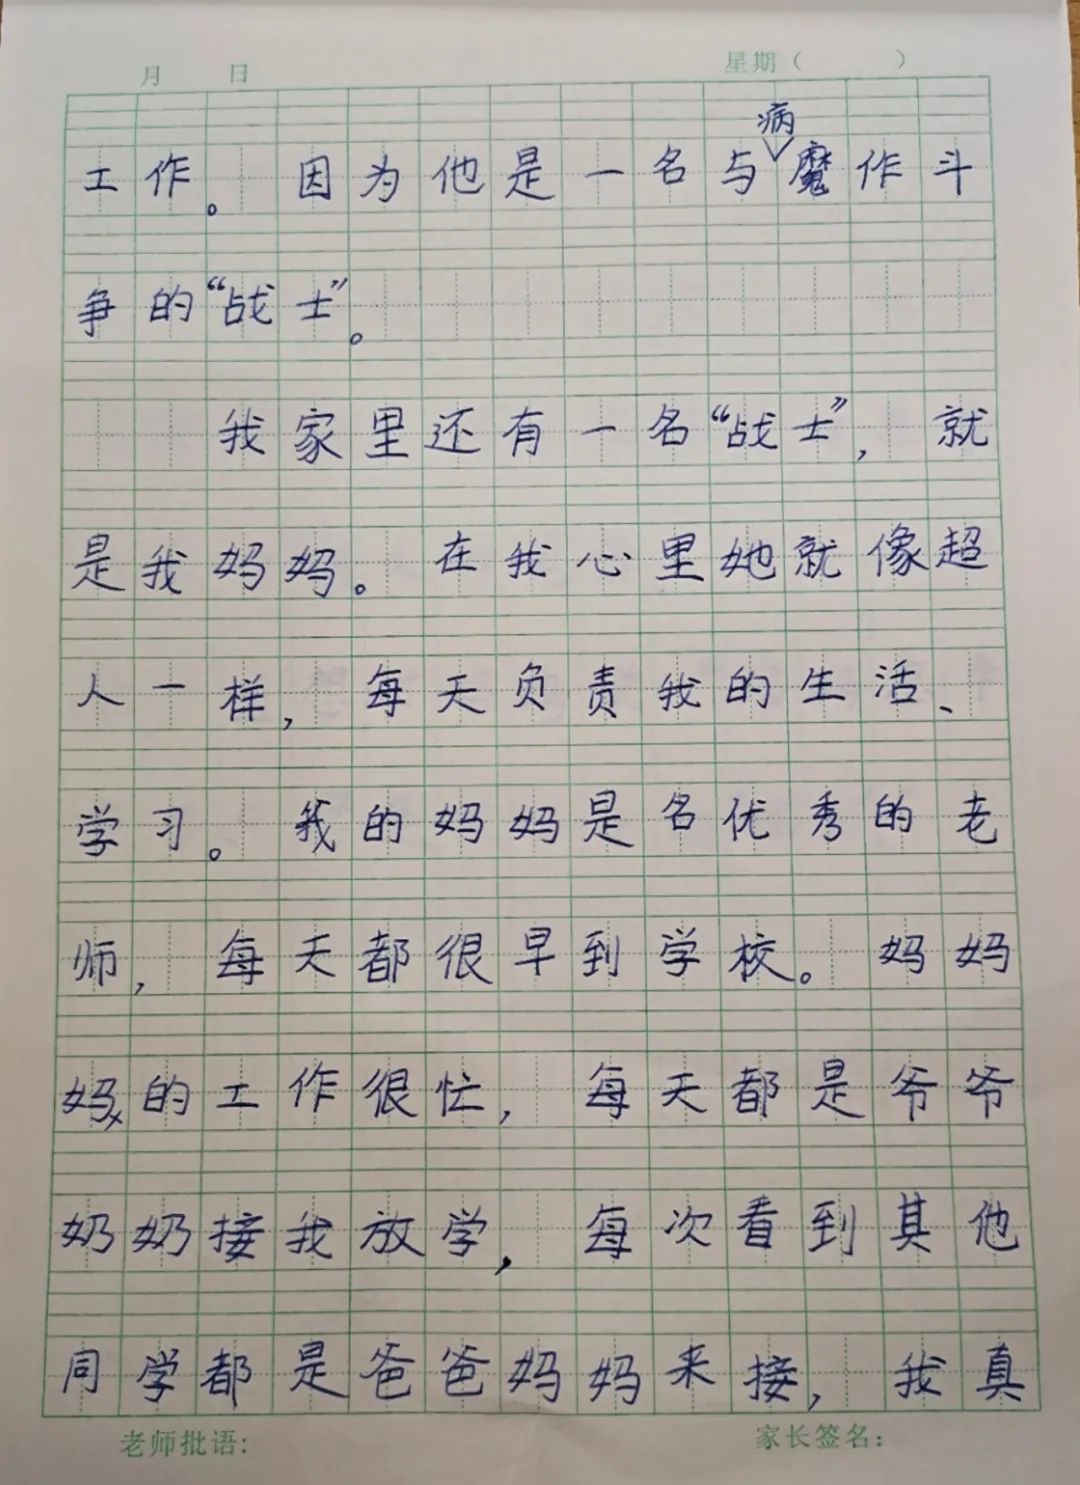 月 日 星期（ ）
工作。因为他是一名与病魔作斗
争的“战士”。
我家里还有一名“战士”，就
是我妈妈。在我心里她就像超
人一样，每天负责我的生活、
学习。我的妈妈是名优秀的老
师，每天都很早到学校。妈妈
妈的工作很忙，每天都是爷爷
奶奶接我放学，每次看到其他
同学都是爸爸妈妈来接，我真
老师批语: 家长签名: